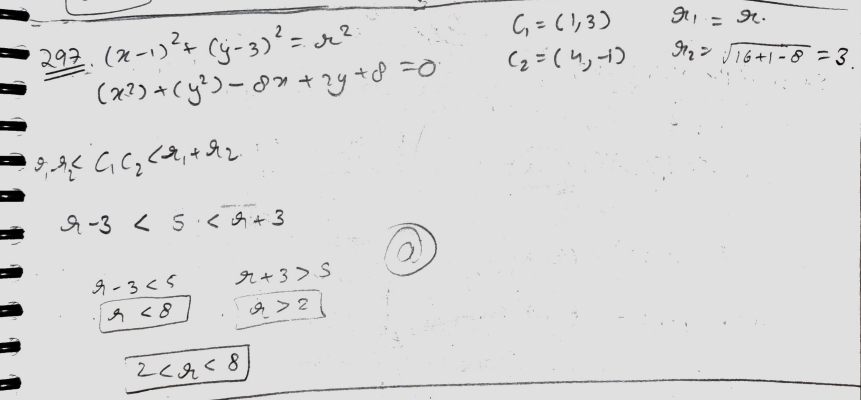 297. (x-1)² + (y-3)² = r²
(x²) + (y²) - 8x + 2y + 8 = 0
C₁ = (1,3) r₁ = r.
C₂ = (4,-1) r₂ = √16+1-8 = 3.
r₁ r₂ < C₁C₂ < r₁ + r₂
r-3 < 5 < r+3
r-3 < 5 r+3 > 5
r < 8 r > 2
2 < r < 8
a